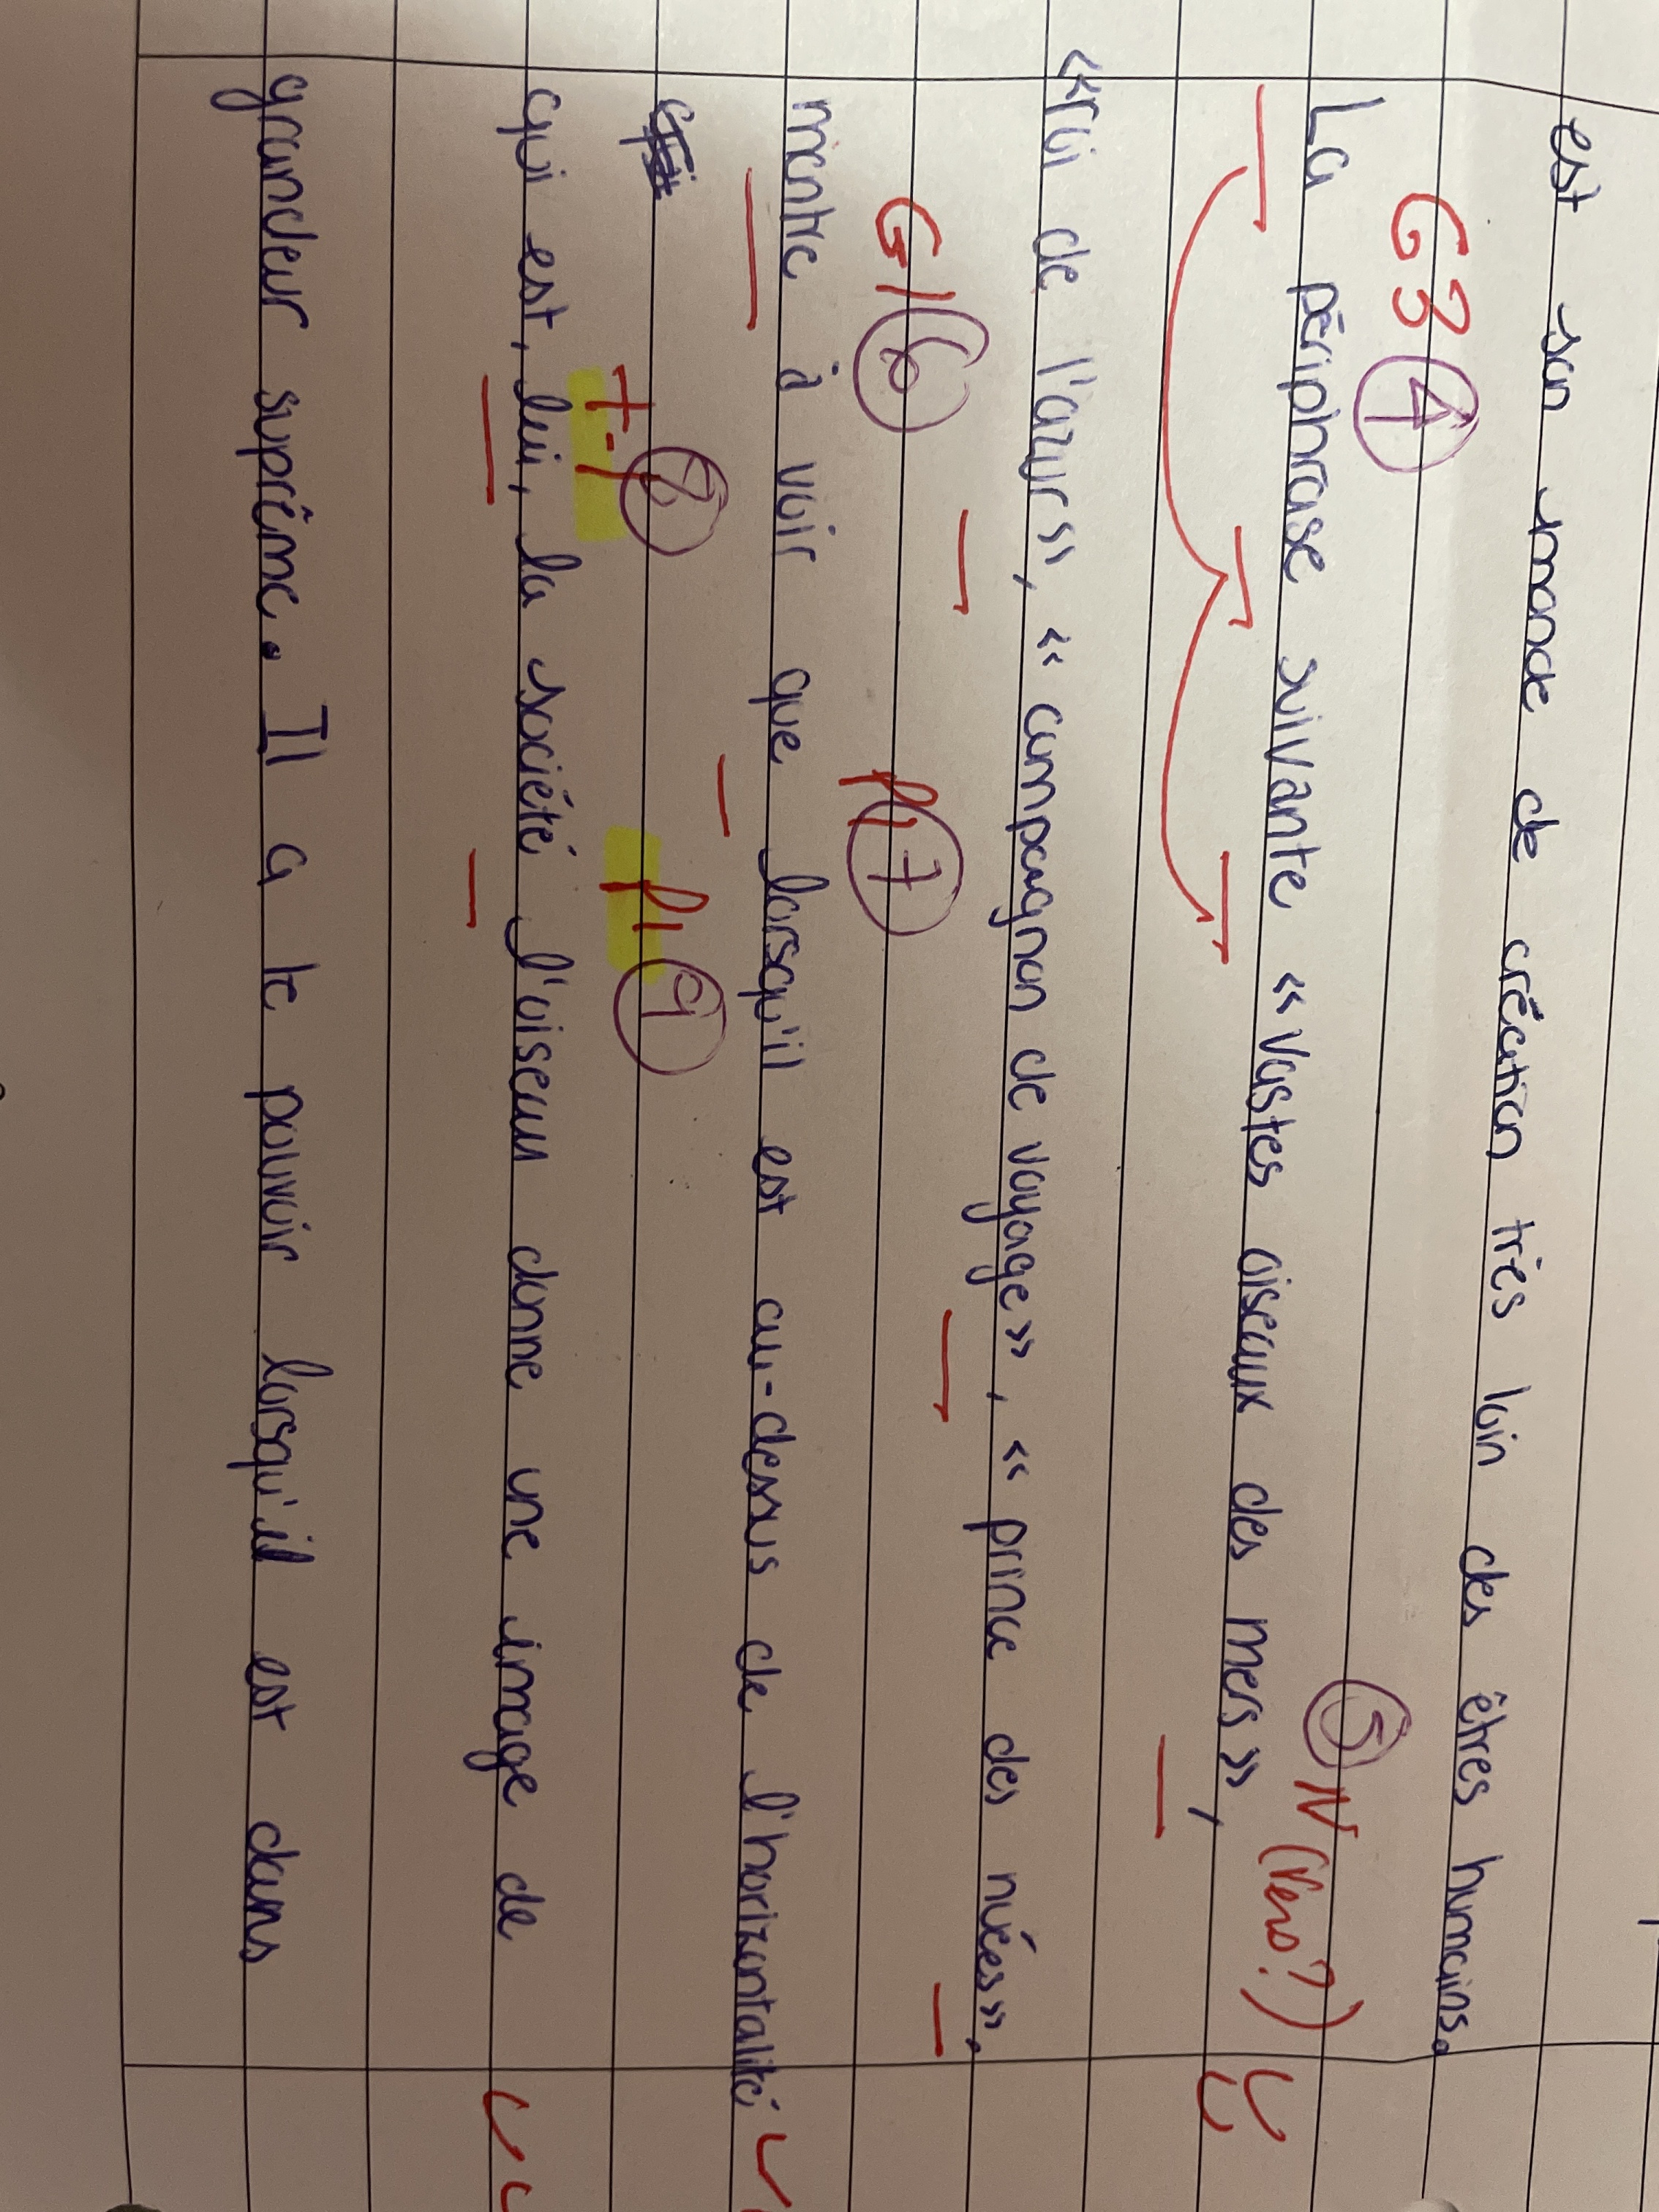 est son monde de création très loin des êtres humains.
G3 4 5 N (vers?)
La périphrase suivante « vastes oiseaux des mers »,
«roi de l'azur», « compagnon de voyage», « prince des nuées».
G1 6 P1 7
montre à voir que lorsqu'il est au-dessus de l'horizontalité
8 P1 9
qui est, lui, la société l'oiseau donne une image de
grandeur suprême. Il a le pouvoir lorsqu'il est dans